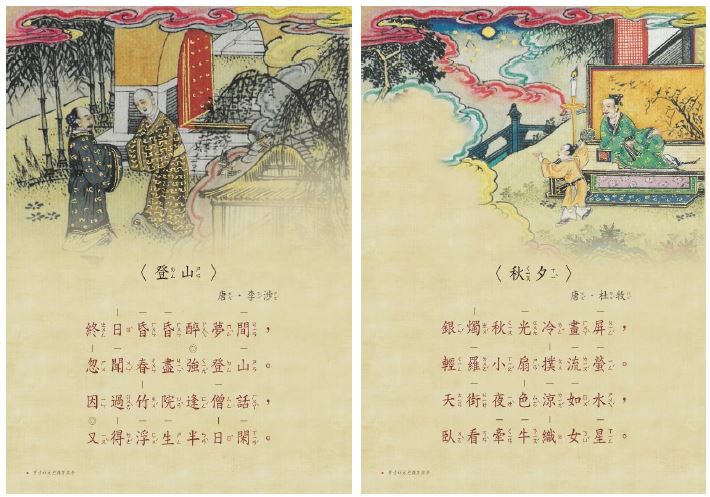 〈登山〉
唐·李涉
終日昏昏醉夢間，
忽聞春盡強登山。
因過竹院逢僧話，
又得浮生半日閑。
〈秋夕〉
唐·杜牧
銀燭秋光冷畫屏，
輕羅小扇撲流螢。
天街夜色涼如水，
臥看牽牛織女星。